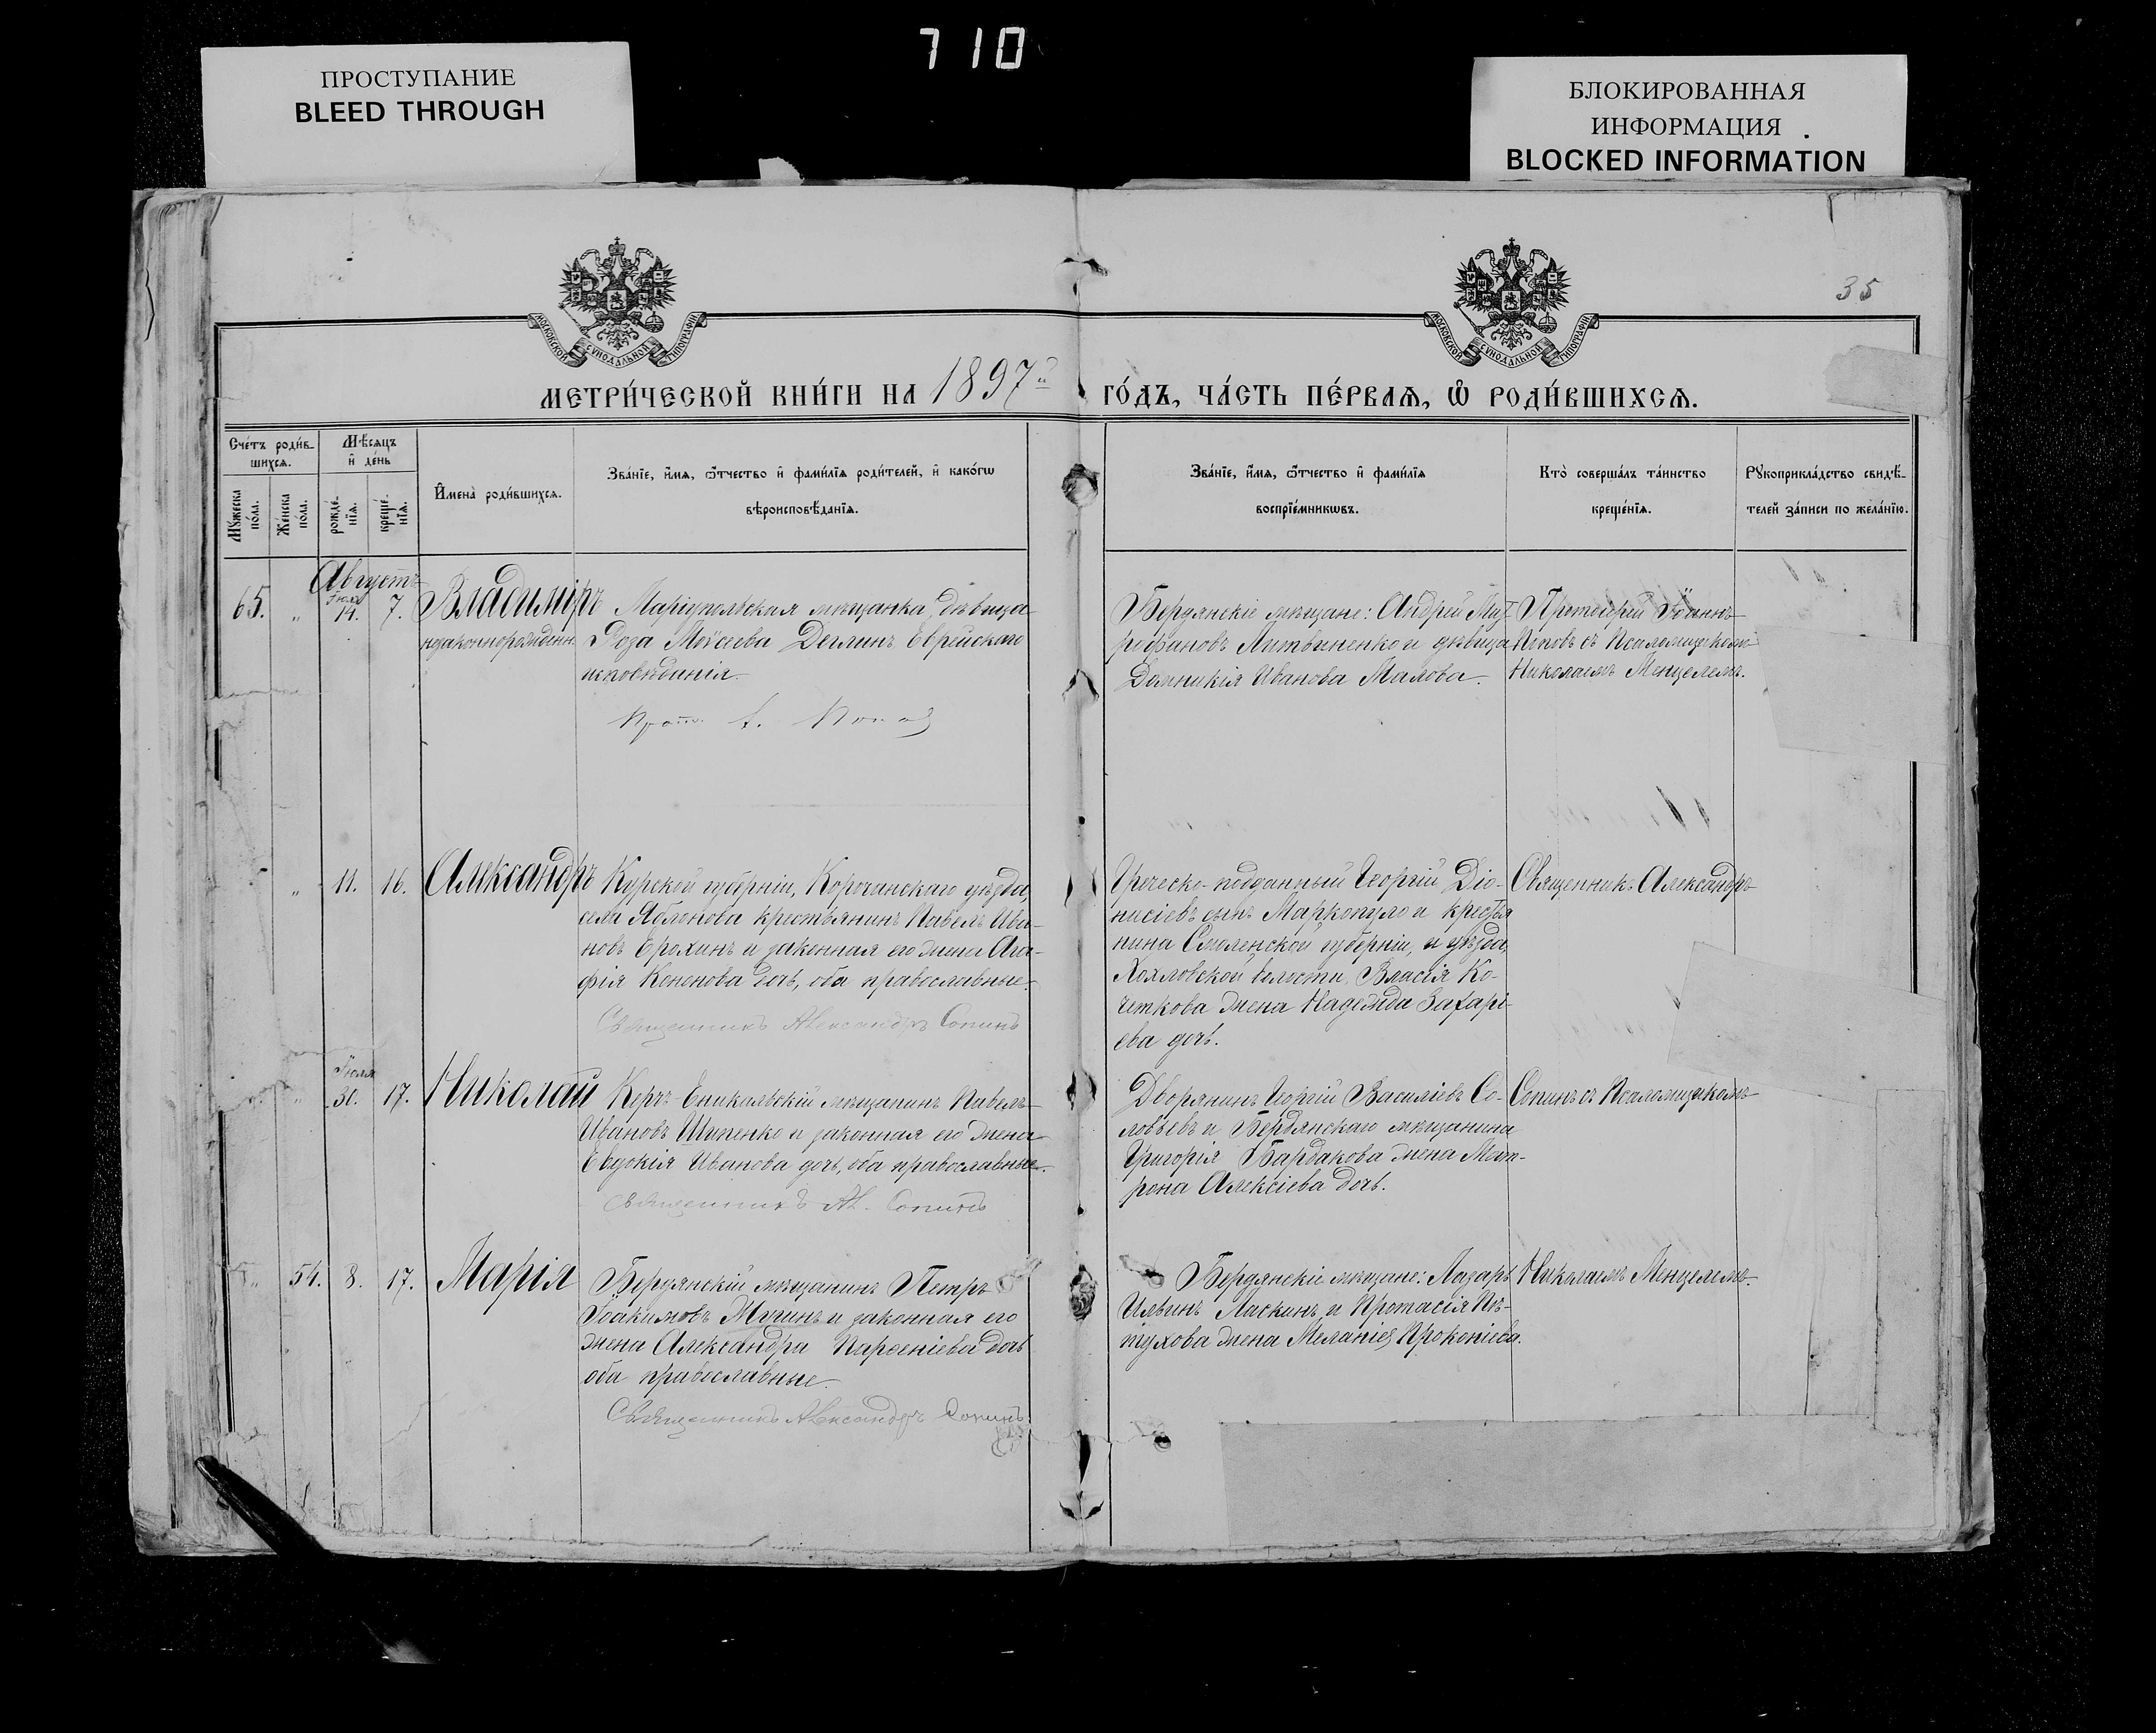 710
ПРОСТУПАНИЕ
BLEED THROUGH
БЛОКИРОВАННАЯ
ИНФОРМАЦИЯ
BLOCKED INFORMATION
35
МОСКОВСКОЙ СѴНОДАЛЬНОЙ ТИПОГРАФІИ
МОСКОВСКОЙ СѴНОДАЛЬНОЙ ТИПОГРАФІИ
МЕТРИ́ЧЕСКОЙ КНИ́ГИ НА 1897й ГО́ДЪ, ЧА́СТЬ ПЕ́РВАѦ, Ѡ҆ РОДИ́ВШИХСѦ.
Сче́тъ роди́в-
шихсѧ.
Мꙋ́жеска по́ла.
Же́нска по́ла.
Мѣ́сѧцъ
и҆ де́нь
рожде́-
нїѧ.
креще́-
нїѧ.
И҆мена̀ роди́вшихсѧ.
Зва́нїе, и҆́мѧ, ѻ҆́тчество и҆ фами́лїѧ роди́телей, и҆ како́гѡ
вѣроисповѣ́данїѧ.
Зва́нїе, и҆́мѧ, ѻ҆́тчество и҆ фами́лїѧ
воспрїе́мникѡвъ.
Кто̀ соверша́лъ та́инство
креще́нїѧ.
Рꙋкоприкла́дство свидѣ́-
телей за́писи по жела́нїю.
Августъ
65. „ 14. 7. Владиміръ
незаконнорожденн.
Маріупольская мѣщанка, дѣвица
Роза Моисеева Деглинъ Еврейскаго
исповѣданія.
Прот. І. Поповъ
Бердянскіе мѣщане: Андрей Мит-
рофановъ Литвиненко и дѣвица
Домникія Иванова Малова.
Протоіерей Іоаннъ
Поповъ съ Псаломщикомъ
Николаемъ Менцелемъ.
„ 11. 16. Александръ
Курской губерніи, Корочанскаго уѣзда,
села Яблонова крестьянинъ Павелъ Ива-
новъ Ерохинъ и законная его жена Ага-
фія Кононова дочь, оба православные.
Священникъ Александръ Сопинъ
Греческо-подданный Георгій Діо-
нисіевъ сынъ Маркопуло и крестья
нина Смоленской губерніи, и уѣзда,
Хохловской волости, Власія Ко-
четкова жена Надежда Захарі-
ева дочь.
Священникъ Александръ
Іюля
30. 17. Николай
Керчь-Еникальскій мѣщанинъ Павелъ
Ивановъ Шипенко и законная его жена
Евдокія Иванова дочь, оба православные.
Священникъ Ал. Сопинъ
Дворянинъ Георгій Василіевъ Со-
ловьевъ и Бердянскаго мѣщанина
Григорія Бардакова жена Мат-
рона Алексіева дочь.
Сопинъ съ Псаломщикомъ
„ 54. 8. 17. Марія
Бердянскій мѣщанинъ Петръ
Іоакимовъ Мунинъ и законная его
жена Александра Парѳеніева дочь
оба православные.
Священникъ Александръ Сопинъ
Бердянскіе мѣщане: Лазарь
Ильинъ Ласкинъ и Протасія Пѣ-
тухова жена Меланія Прокопіева.
Николаемъ Менцелемъ.